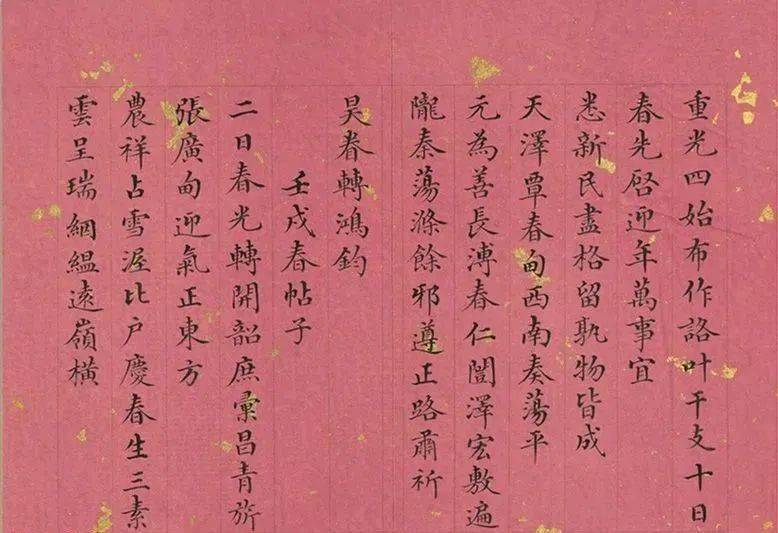 重光四始布作詻叶干支十日
春先啓迎年萬事宜
悉新民盡格留孰物皆成
天澤覃春甸西南奏蕩平
元為善長溥春仁闓澤宏敷遍
隴秦蕩滌餘邪遵正路肅祈
昊眷轉鴻鈞
壬戌春帖子
二日春光轉開韶庶彚昌青旂
張廣甸迎氣正東方
農祥占雪渥比戶慶春生三素
雲呈瑞絪縕遠嶺橫